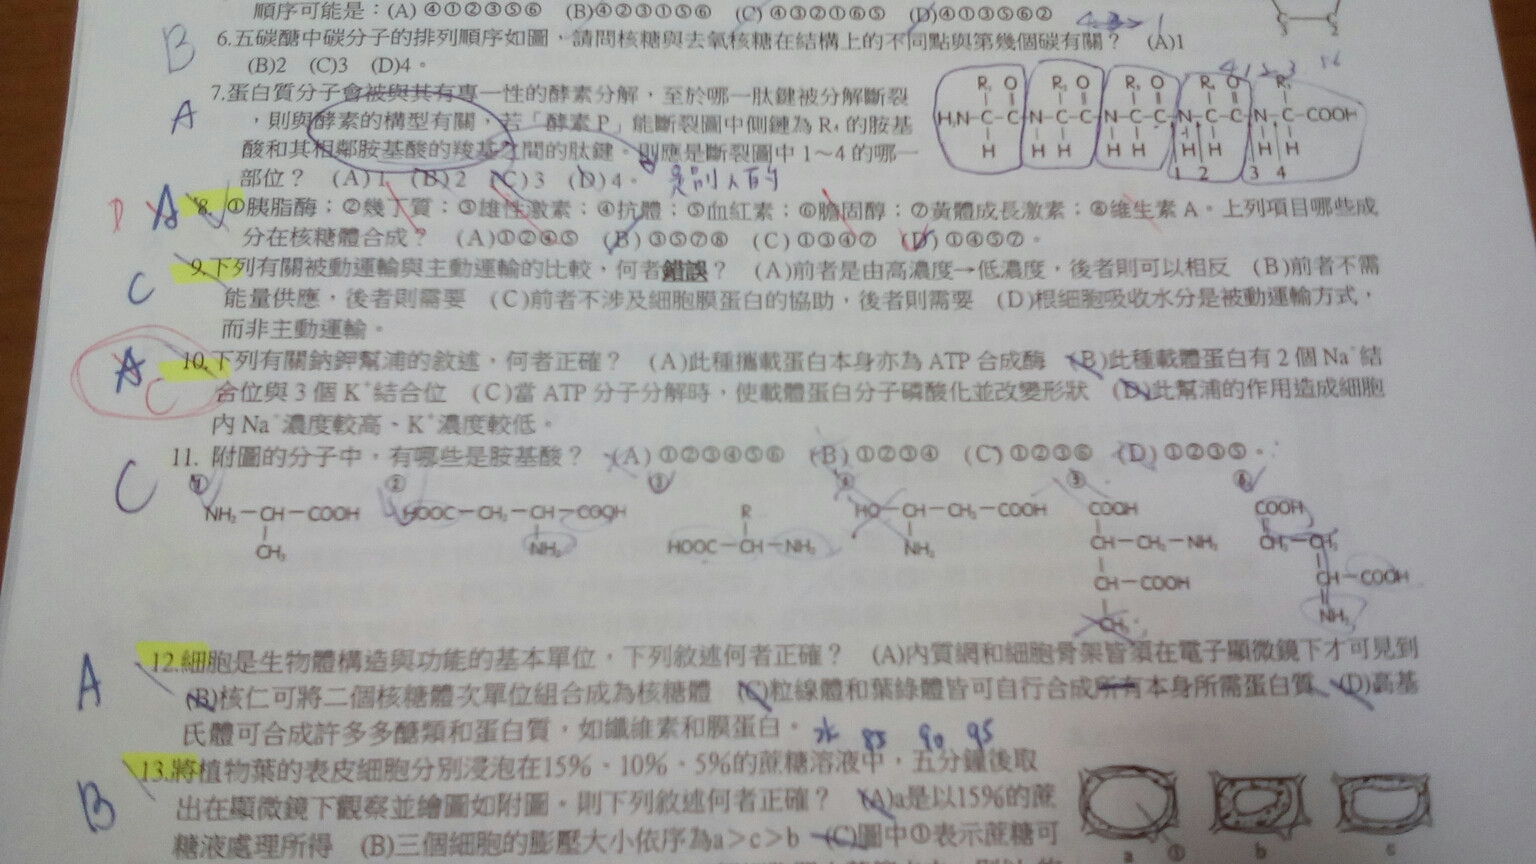 順序可能是：(A) ④①②③⑤⑥ (B)④②③①⑤⑥ (C) ④③②①⑥⑤ (D)④①③⑤⑥②
3 2
B
6.五碳醣中碳分子的排列順序如圖，請問核糖與去氧核糖在結構上的不同點與第幾個碳有關？ (A)1
(B)2 (C)3 (D)4。
A
7.蛋白質分子會被與其有專一性的酵素分解，至於哪一肽鍵被分解斷裂
，則與酵素的構型有關，若「酵素 P」能斷裂圖中側鏈為 R₄ 的胺基
酸和其相鄰胺基酸的羧基之間的肽鍵。則應是斷裂圖中 1～4 的哪一
部位？ (A)1 (B)2 (C)3 (D)4。
是別人的
H₂N－C－C－N－C－C－N－C－C－N－C－C－N－C－COOH
1 2 3 4
D A
8.①胰脂酶；②幾丁質；③雄性激素；④抗體；⑤血紅素；⑥膽固醇；⑦黃體成長激素；⑧維生素 A。上列項目哪些成
分在核糖體合成？ (A)①②④⑤ (B)③⑤⑦⑧ (C)①③④⑦ (D)①④⑤⑦。
C
9.下列有關被動運輸與主動運輸的比較，何者錯誤？ (A)前者是由高濃度→低濃度，後者則可以相反 (B)前者不需
能量供應，後者則需要 (C)前者不涉及細胞膜蛋白的協助，後者則需要 (D)根細胞吸收水分是被動運輸方式，
而非主動運輸。
A C
10.下列有關鈉鉀幫浦的敘述，何者正確？ (A)此種攜載蛋白本身亦為 ATP 合成酶 (B)此種載體蛋白有 2 個 Na⁺結
合位與 3 個 K⁺結合位 (C)當 ATP 分子分解時，使載體蛋白分子磷酸化並改變形狀 (D)此幫浦的作用造成細胞
內 Na⁺濃度較高、K⁺濃度較低。
C
11. 附圖的分子中，有哪些是胺基酸？ (A)①②③④⑤⑥ (B)①②③④ (C)①②③⑥ (D)①②③⑤。
① ② ③ ④ ⑤ ⑥
NH₂－CH－COOH
CH₃
HOOC－CH₂－CH－COOH
NH₂
R
HOOC－CH－NH₂
HO－CH－CH₂－COOH
NH₂
COOH
CH－CH₂－NH₂
CH－COOH
CH₃
COOH
CH₂－CH₂
CH－COOH
NH₂
A
12.細胞是生物體構造與功能的基本單位，下列敘述何者正確？ (A)內質網和細胞骨架皆須在電子顯微鏡下才可見到
(B)核仁可將二個核糖體次單位組合成為核糖體 (C)粒線體和葉綠體皆可自行合成所有本身所需蛋白質 (D)高基
氏體可合成許多多醣類和蛋白質，如纖維素和膜蛋白。
水 85 90 95
B
13.將植物葉的表皮細胞分別浸泡在15%、10%、5%的蔗糖溶液中，五分鐘後取
出在顯微鏡下觀察並繪圖如附圖。則下列敘述何者正確？ (A)a是以15%的蔗
糖液處理所得 (B)三個細胞的膨壓大小依序為a＞c＞b (C)圖中①表示蔗糖可
a ① b c